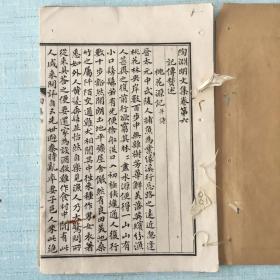 陶淵明文集卷第六
記傳贊述
桃花源記并詩
晉太元中武陵人捕魚為業緣溪行忘路之遠近忽逢
桃花林夾岸數百步中無雜樹芳華鮮美落英繽紛漁
人甚異之復前行欲窮其林林盡水源便得一山山有
小口髣髴若有光便捨船從口入初極狹纔通人復行
數十步豁然開朗土地平曠屋舍儼然有良田美池桑
竹之屬阡陌交通雞犬相聞其中往來種作男女衣著
悉如外人黃髮垂髫並怡然自樂見漁人乃大驚問所
從來具答之便要還家為設酒殺雞作食村中聞有此
人咸來問訊自云先世避秦時亂率妻子邑人來此絕